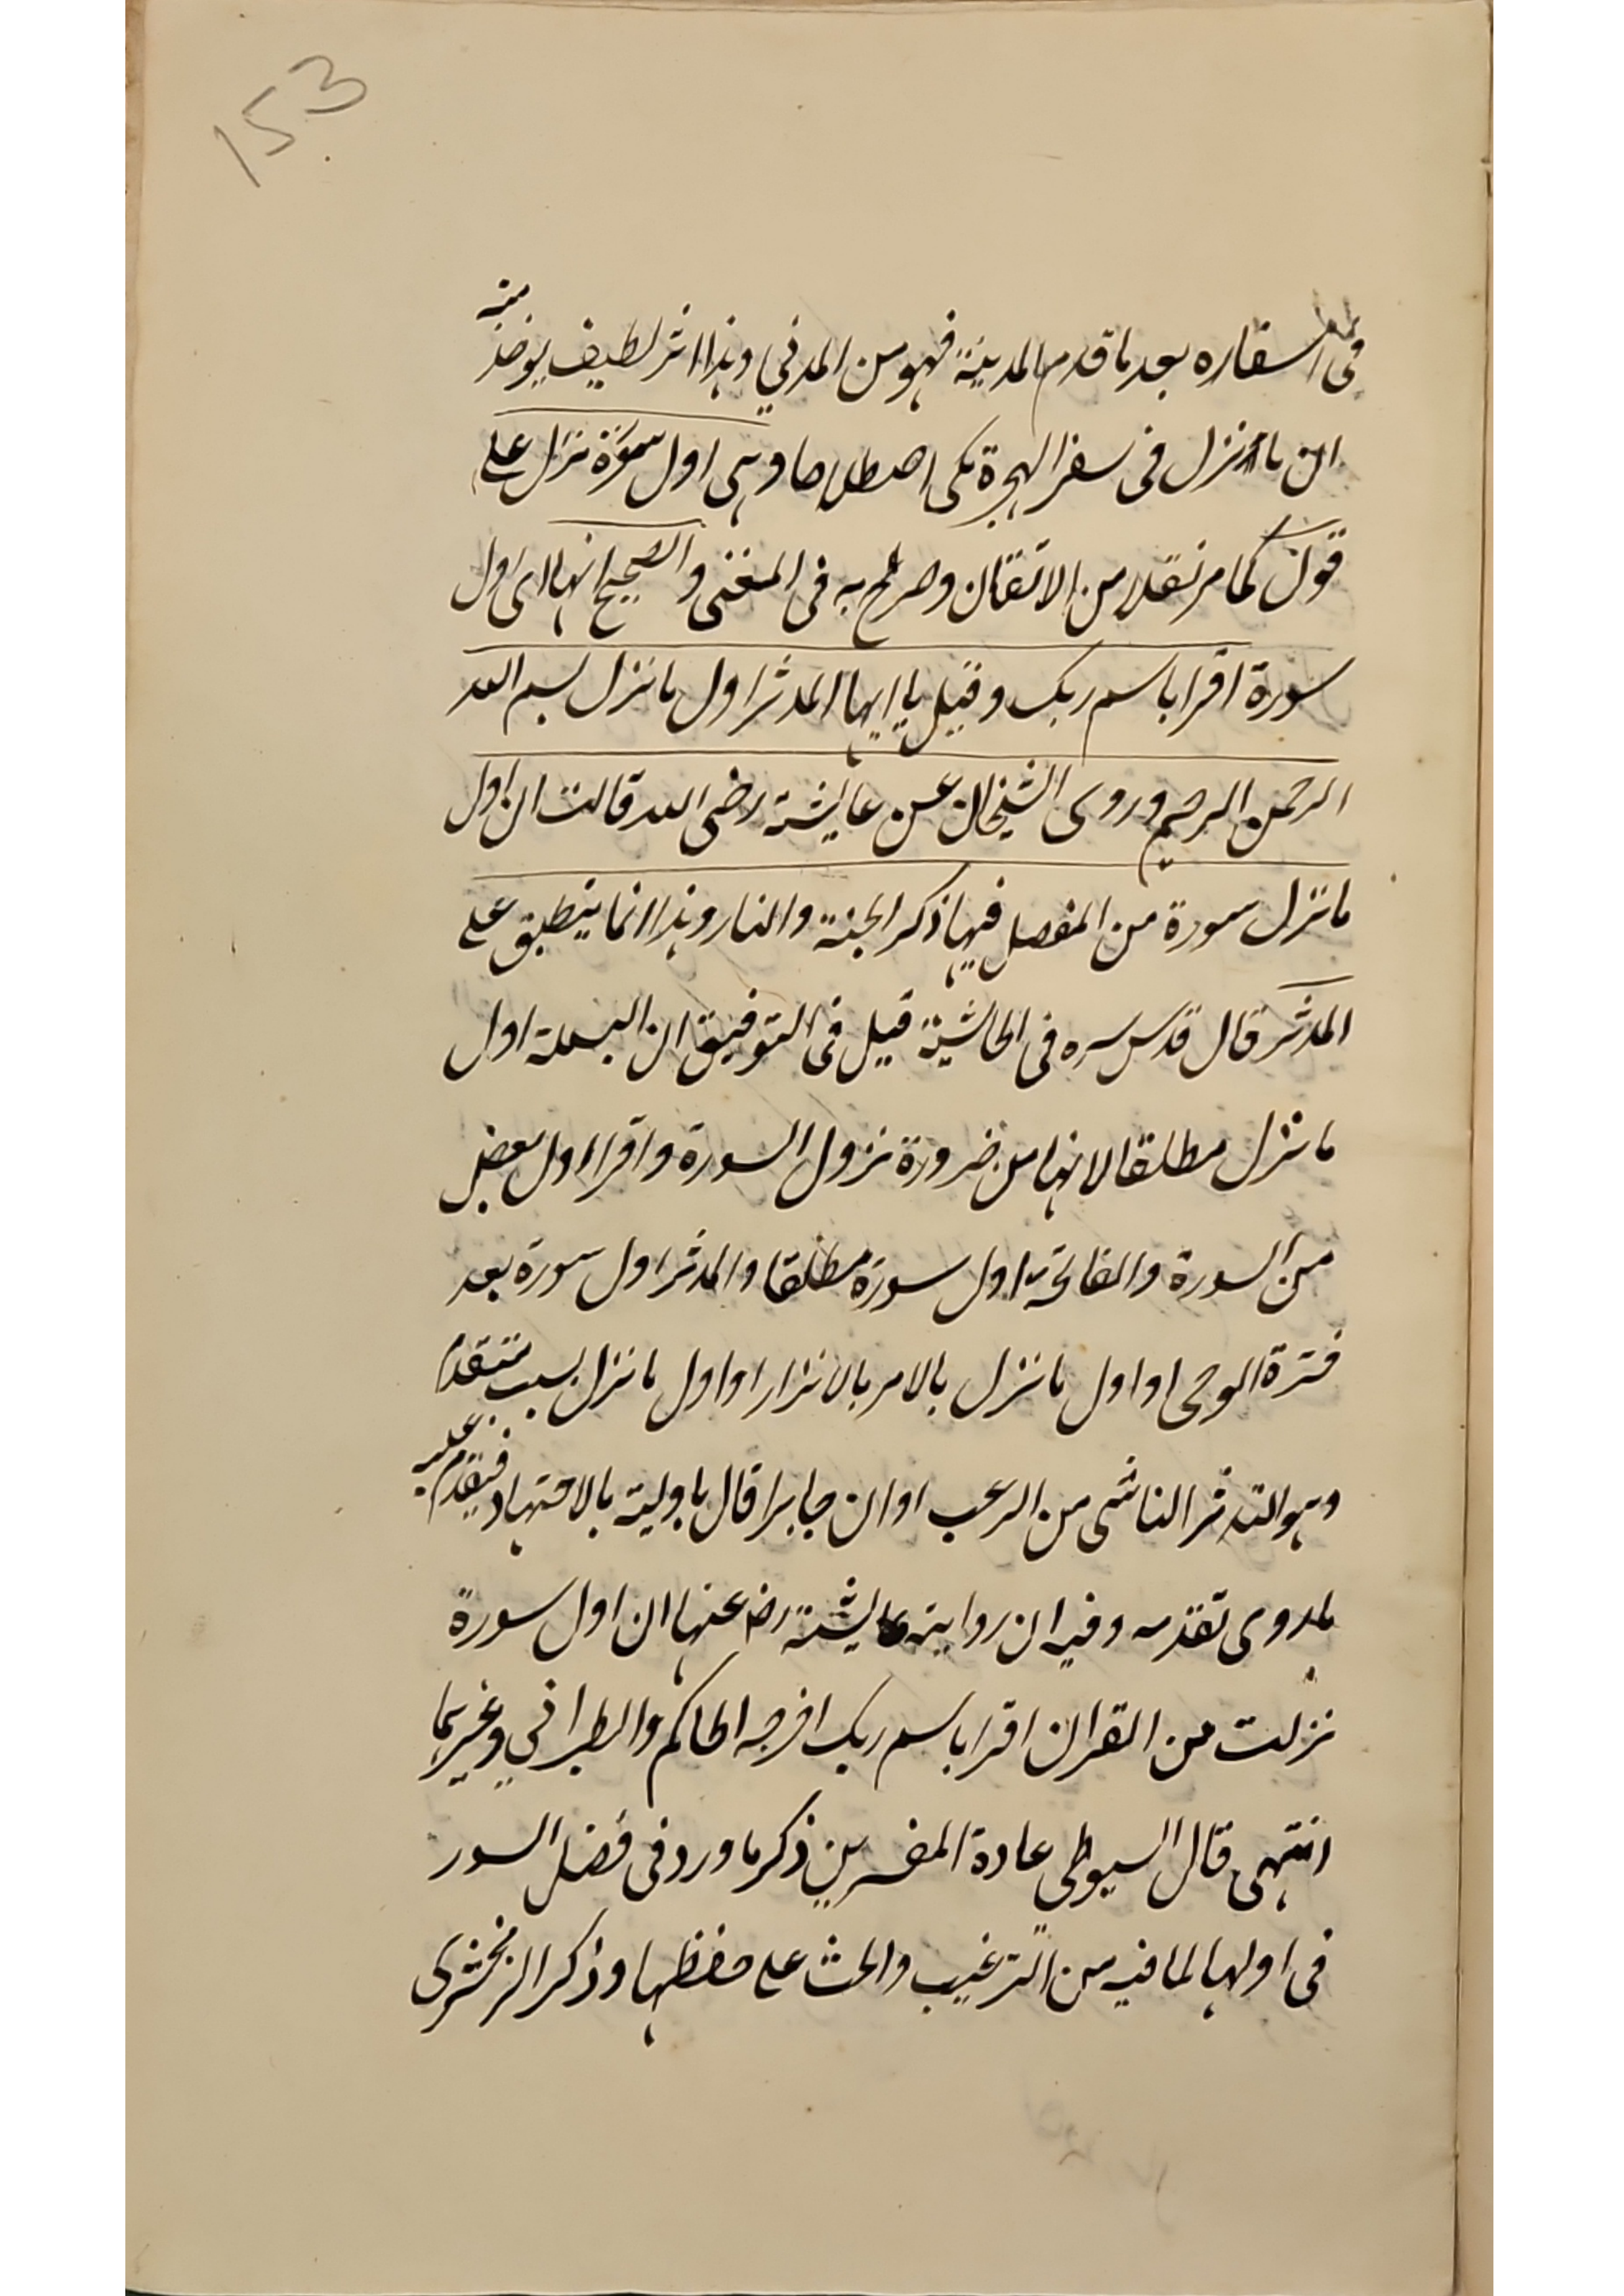 153
فى اسفاره بعد ما قدم المدينة فهو من المدني وهذا اثر لطيف يوخذ منه
ان ما نزل فى سفر الهجرة مكى اصطلاحا وهى اول سورة نزل على
قول كما مر نقلا من الاتقان وصرح به فى المغنى والصحيح انها اى اول
سورة اقرا باسم ربك وقيل يا ايها المدثر اول ما نزل بسم الله
الرحمن الرحيم وروى الشيخان عن عايشة رضى الله قالت ان اول
ما نزل سورة من المفصل فيها ذكر الجنة والنار وهذا انما ينطبق على
المدثر قال قدس سره فى الحاشية قيل فى التوفيق ان البسملة اول
ما نزل مطلقا لانها من ضرورة نزول السورة واقرا اول بعض
من السورة والفاتحة اول سورة مطلقا والمدثر اول سورة بعد
فترة الوحى او اول ما نزل بالامر بالانذار او اول ما نزل بسبب متقدم
وهو التدثر الناشى من الرعب او ان جابرا قال باوليته بالاجتهاد فيقدم عليه
لمروى تقدمه وفيه ان رواية عايشة رض عنها ان اول سورة
نزلت من القران اقرا باسم ربك اخرجه الحاكم والطبراني وغيرهما
انتهى قال السيوطى عادة المفسرين ذكر ما ورد فى فضل السور
فى اولها لما فيه من الترغيب والحث على حفظها وذكر الزمخشرى